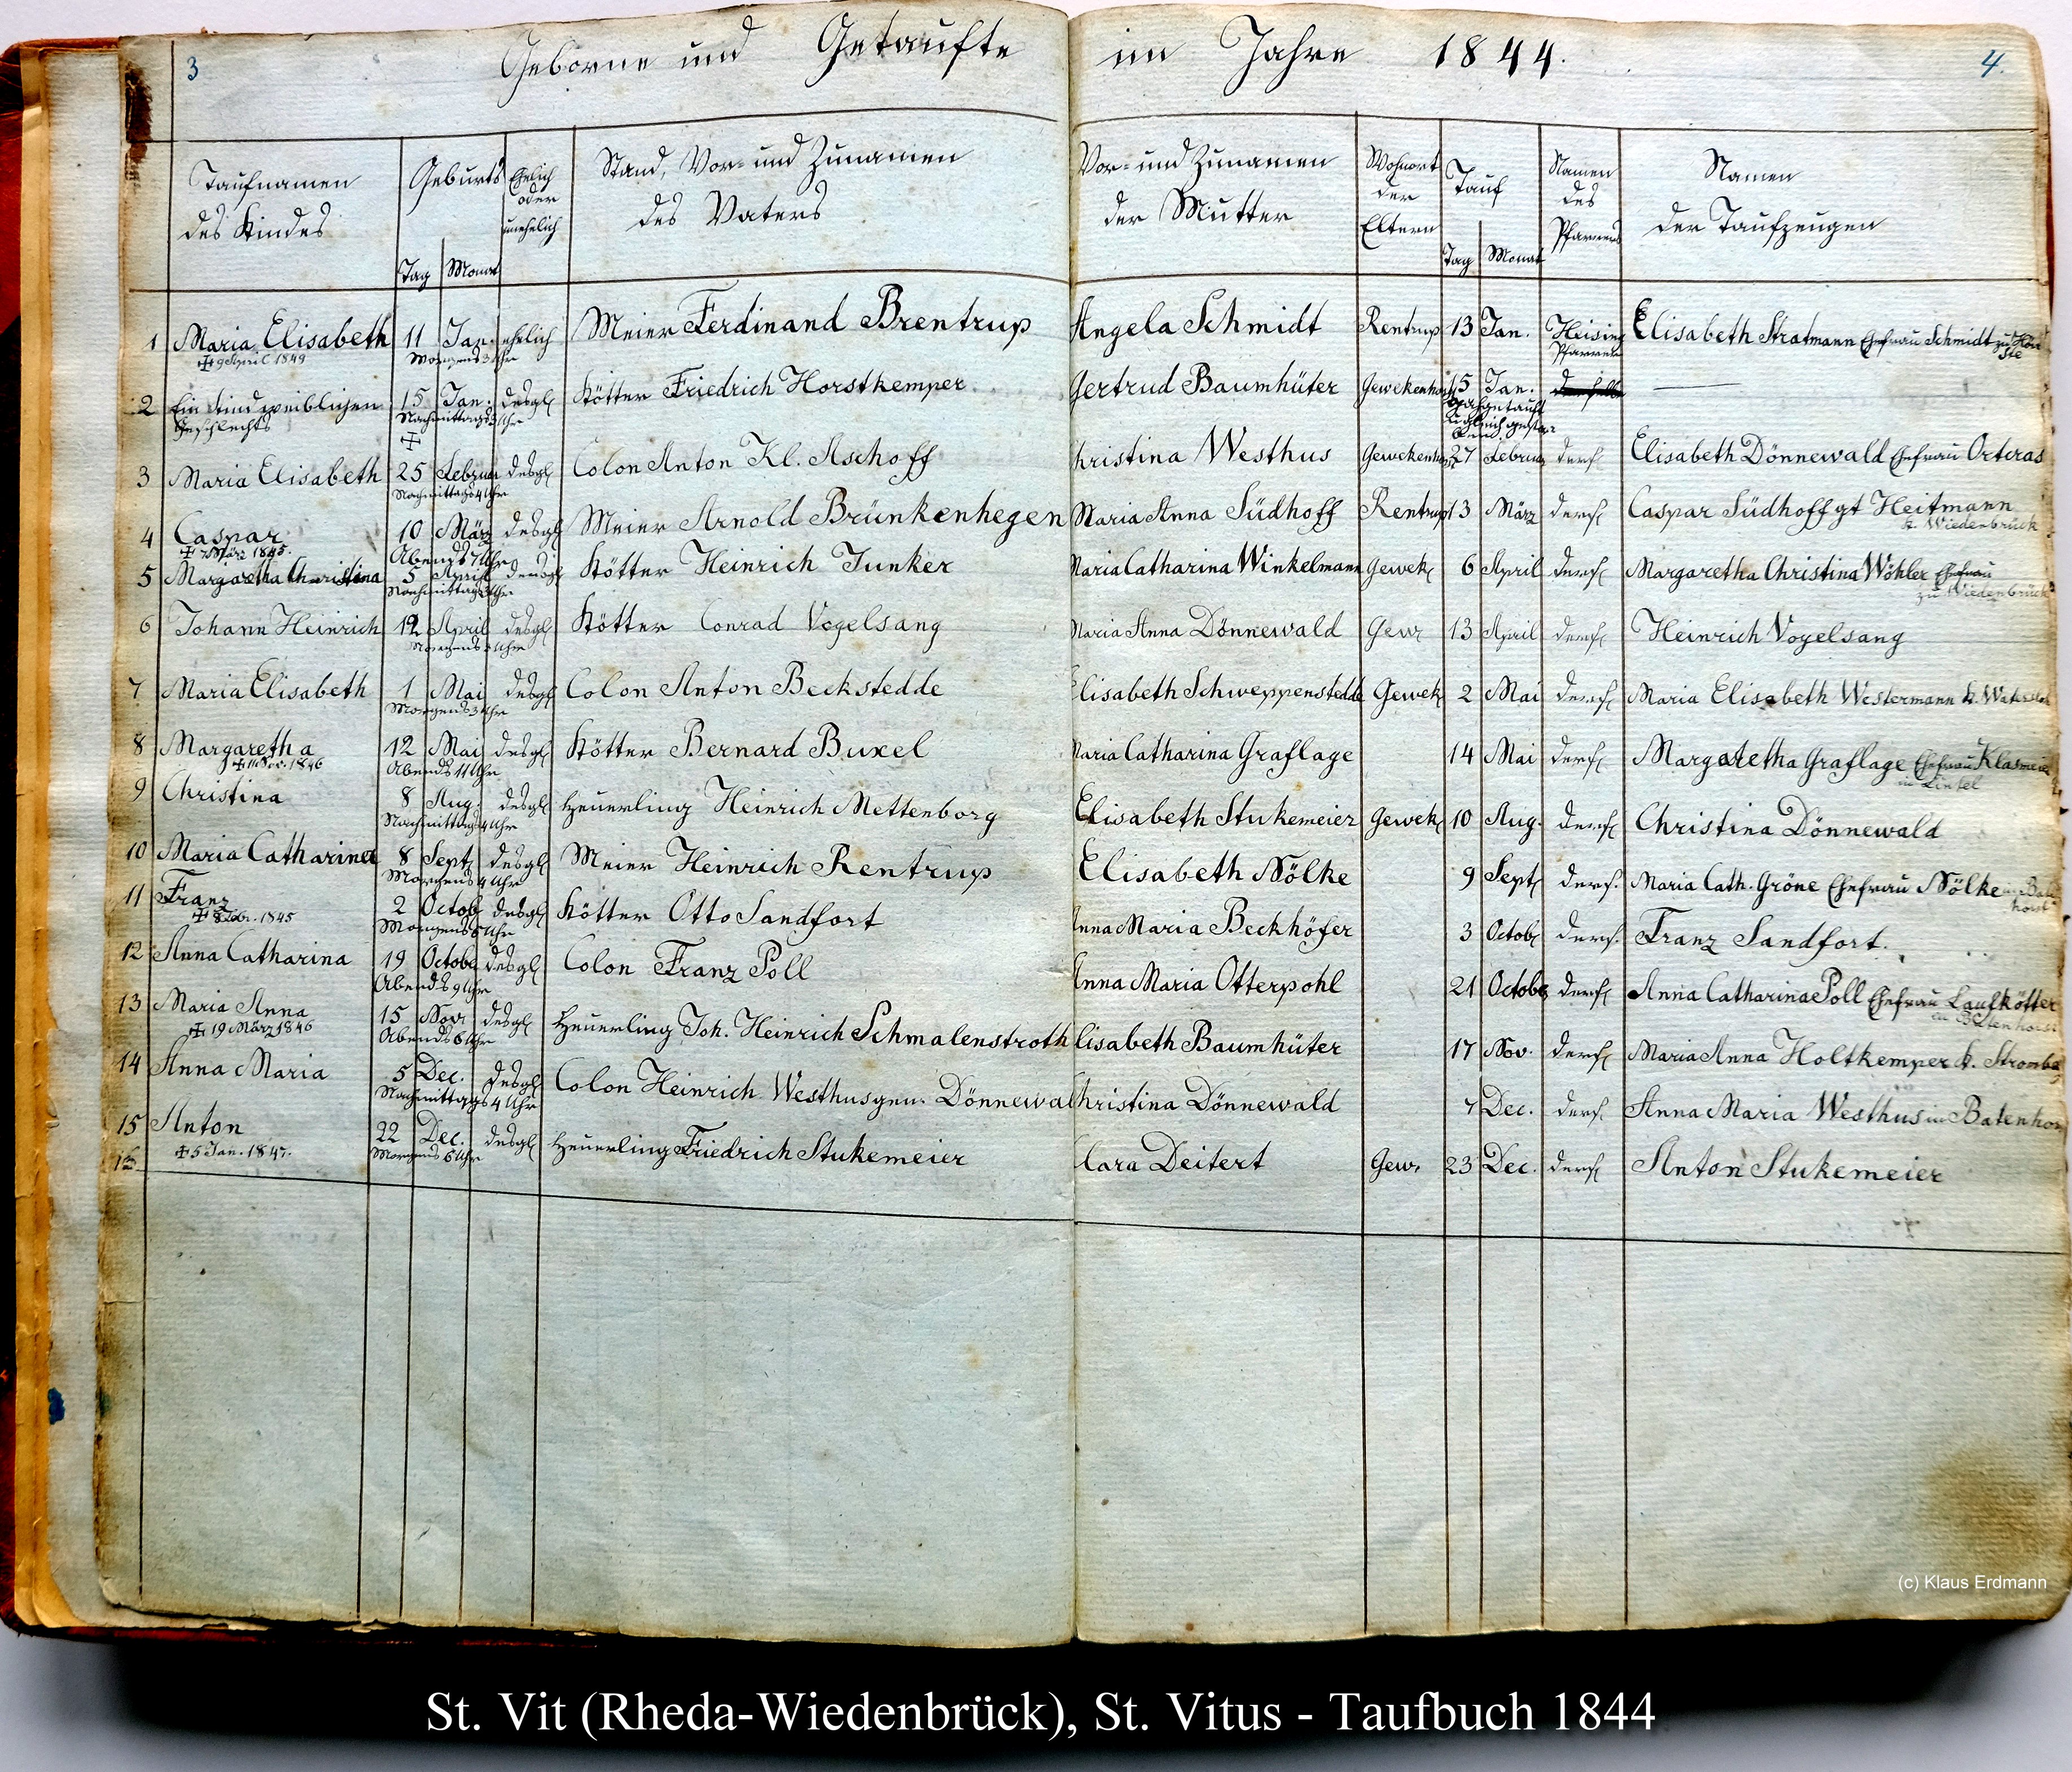 3
Geborne und Getaufte im Jahre 1844.
4.
Taufnamen des Kindes
Geburts
Tag Monat
Ehelich oder unehelich
Stand, Vor- und Zunamen des Vaters
Vor- und Zunamen der Mutter
Wohnort der Eltern
Tauf
Tag Monat
Namen des Pfarrers
Namen der Taufzeugen
1 Maria Elisabeth 11 Jan. ehelich Meier Ferdinand Brentrup Angela Schmidt Rentrup 13 Jan. Heising Elisabeth Stratmann Ehefrau Schmidt
9 April 1849 Morgens 3 Uhr Pfarrer
2 Ein Kind weiblichen 15 Jan. desgl Kötter Friedrich Horstkemper Gertrud Baumhüter Gewekenhorst 15 Jan.
Geschlechts Nachmittags Uhr
3 Maria Elisabeth 25 Februar desgl Colon Anton Kl. Aschoff Christina Westhus Gewekenhorst 27 Februar ders Elisabeth Dönnewald Ehefrau Ortcras
Nachmittags 4 Uhr
4 Caspar 10 März desgl Meier Arnold Brünkenhegen Maria Anna Südhoff Rentrup 13 März ders Caspar Südhoff gt Heitmann
7 März 1845. Abends 7 Uhr z. Wiedenbrück
5 Margaretha Christina 5 April desgl Kötter Heinrich Junker Maria Catharina Winkelmann Gewek 6 April ders Margaretha Christina Wöhler Ehefrau
Nachmittags 3 Uhr zu Wiedenbrück
6 Johann Heinrich 12 April desgl Kötter Conrad Vogelsang Maria Anna Dönnewald Gew 13 April ders Heinrich Vogelsang
Morgens Uhr
7 Maria Elisabeth 1 Mai desgl Colon Anton Beckstedde Elisabeth Schweppenstedde Gewek 2 Mai ders Maria Elisabeth Westermann
Morgens 3 Uhr
8 Margaretha 12 Mai desgl Kötter Bernard Buxel Maria Catharina Graflage 14 Mai ders Margaretha Graflage Ehefrau Klasmeier
11 Nov. 1846 Abends 11 Uhr in Lintel
9 Christina 8 Aug. desgl Heuerling Heinrich Mettenborg Elisabeth Stukemeier Gewek 10 Aug. ders Christina Dönnewald
Nachmittags 4 Uhr
10 Maria Catharina 8 Sept desgl Meier Heinrich Rentrup Elisabeth Nölke 9 Sept ders. Maria Cath. Gröne Ehefrau Nölke
Morgens 4 Uhr
11 Franz 2 Octob desgl Kötter Otto Sandfort Anna Maria Beckhöfer 3 Octob ders. Franz Sandfort.
8 Febr. 1845 Morgens Uhr
12 Anna Catharina 19 Octobr desgl Colon Franz Poll Anna Maria Otterpohl 21 Octobr ders Anna Catharina Poll Ehefrau Laufkötter
Abends 9 Uhr in Batenhorst
13 Maria Anna 15 Nov desgl Heuerling Joh. Heinrich Schmalenstroth Elisabeth Baumhüter 17 Nov. ders Maria Anna Holtkemper
19 März 1846 Abends 6 Uhr
14 Anna Maria 5 Dec. desgl Colon Heinrich Westhus gen. Dönnewal Christina Dönnewald 7 Dec. ders. Anna Maria Westhus in Batenhor
Nachmittags 4 Uhr
15 Anton 22 Dec. desgl Heuerling Friedrich Stukemeier Clara Deitert Gew. 23 Dec. ders Anton Stukemeier
5 Jan. 1847. Morgens 6 Uhr
16.
(c) Klaus Erdmann
St. Vit (Rheda-Wiedenbrück), St. Vitus - Taufbuch 1844